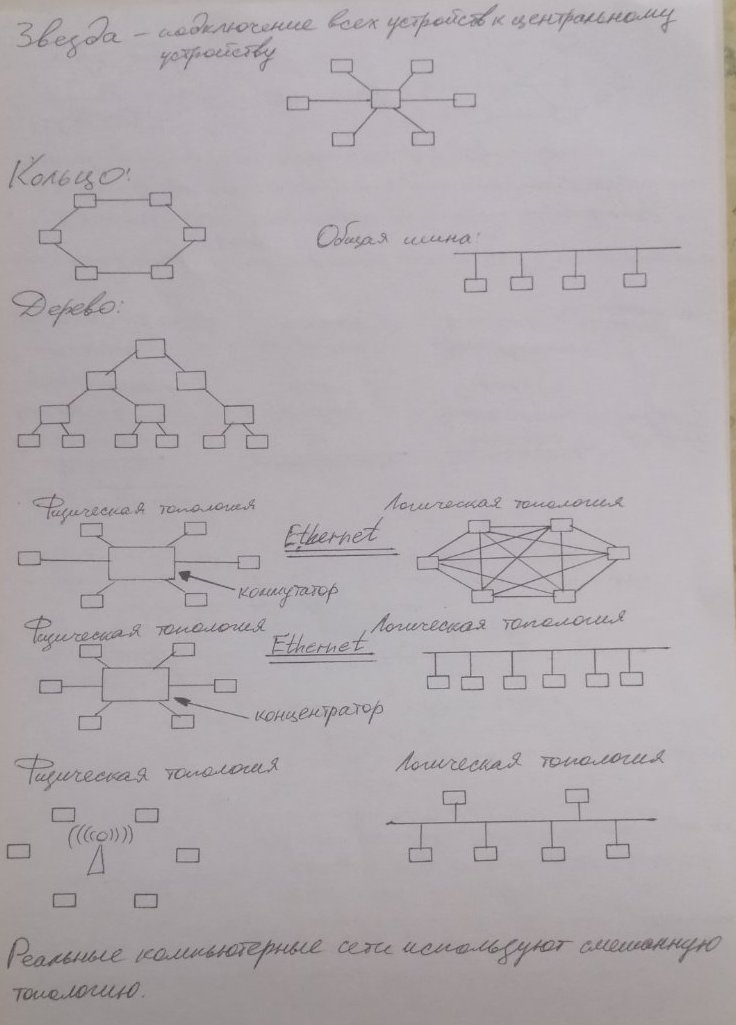 Звезда – подключение всех устройств к центральному
устройству
Кольцо:
Общая шина:
Дерево:
Физическая топология
Ethernet
Логическая топология
коммутатор
Физическая топология
Ethernet
Логическая топология
концентратор
Физическая топология
Логическая топология
Реальные компьютерные сети используют смешанную
топологию.